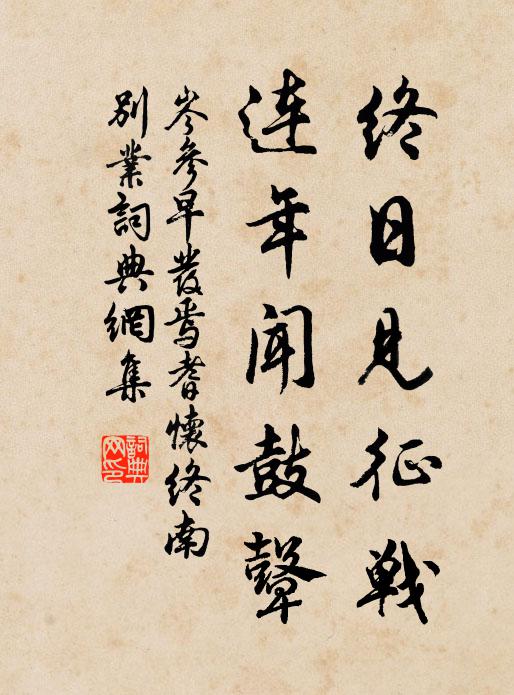 終日見征戰
連年聞鼓鼙
岑參早發焉耆懷終南
別業詞典網集
詞典
网印